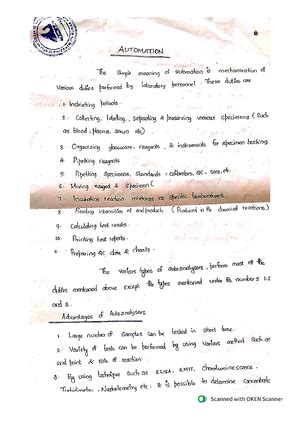 AUTOMATION
The single meaning of automation is mechanization of
various duties performed by laboratory personnel. These duties are
1. Instructing patients.
2. Collecting, labelling, separating & preserving various specimens (Such
as blood, plasma, serum etc)
3. Organizing glassware, reagents, & instruments for specimen testing
4. Pipetting reagents
5. Pipetting, specimens, standards, calibrators, QC, sera, etc.
6. Mixing reagent & specimen (
7. Incubating reaction mixtures at specific temperatures.
8. Reading intensities of end products (Produced in the chemical reactions)
9. Calculating test results.
10. Printing test reports.
Preparing QC data & charts.
The various types of autoanalysers, perform most of the
duties mentioned above except the types mentioned under the numbers 1.2
and 3.
Advantages of Autoanalysers
1. Large number of samples can be tested in short time.
2. Variety of tests can be performed by using various method such as
end point & rate of reaction.
3. By using technique such as ELISA, EMIT, chemiluminescence,
Turbidimeter, Nephelometry etc: It is possible to determine concentrate
Scanned with OKEN Scanner